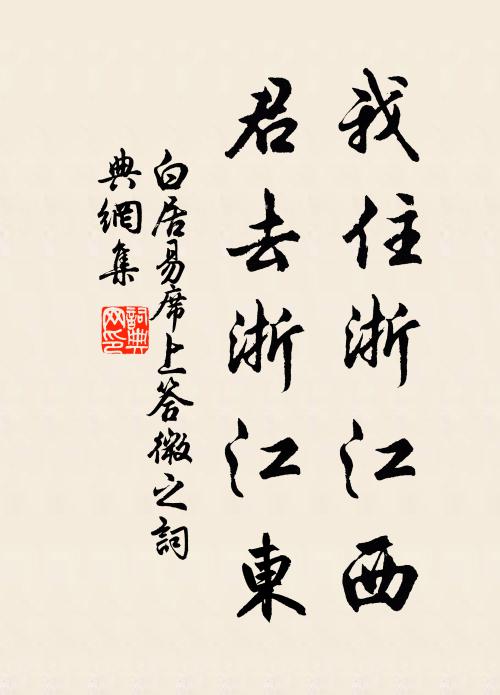 我住浙江西
君去浙江東
白居易席上答微之詞
典網集
詞典
网印